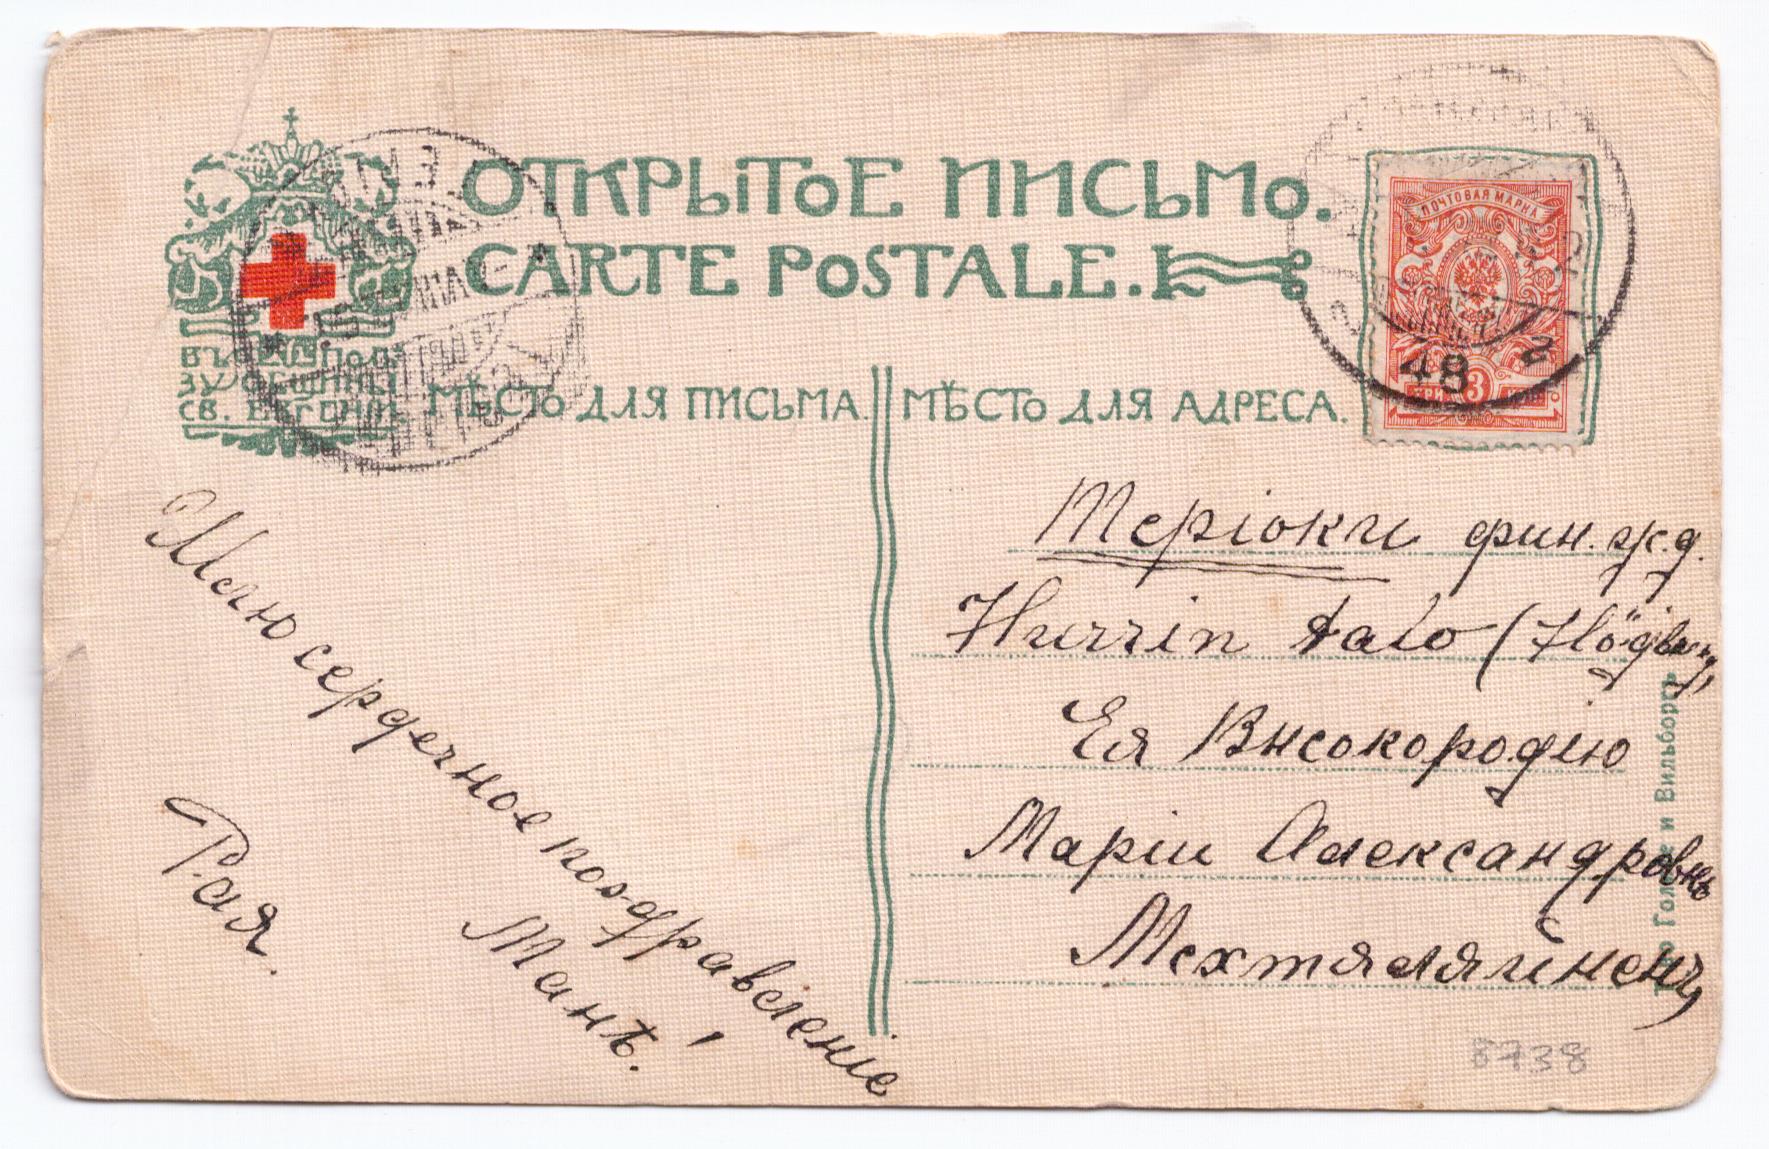 ОТКРЫТОЕ ПИСЬМО.
CARTE POSTALE.
ВЪ ПОЛЬ
ЗУ ОБЩИНЫ
СВ. ЕВГЕНІИ
МѢСТО ДЛЯ ПИСЬМА.
МѢСТО ДЛЯ АДРЕСА.
ПОЧТОВАЯ МАРКА
3
48
Шлю сердечное поздравленіе
Манѣ!
Рая.
Теріоки фин. ж. д.
Hurrin talo
Ея Высокородію
Маріи Александровнѣ
Мехтяляйненъ
Т-во Голике и Вильборгъ
8738